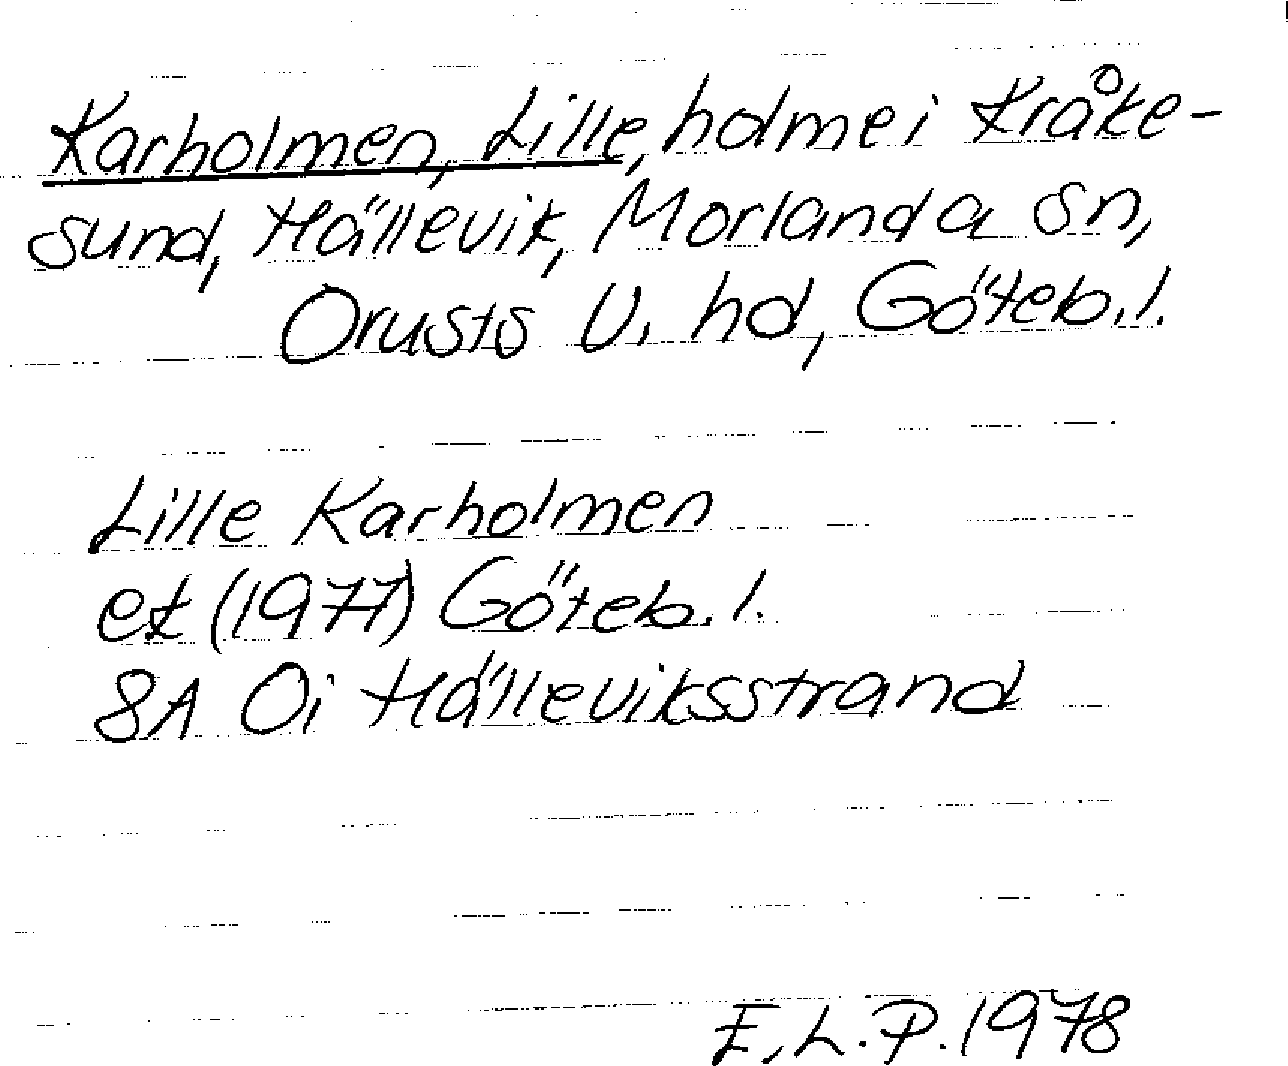 Karholmen, Lille, holme i Kråke-
sund, Hällevik, Morlanda sn,
Orusts V. hd, Göteb. l.
Lille Karholmen
ek (1977) Göteb. l.
8A 0i Hälleviksstrand
E. L. P. 1978